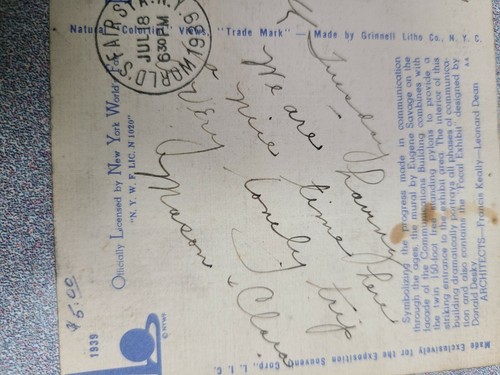 Views, "Trade Mark" — Made by Grinnell Litho Co., N. Y. C.
WORLD'S FAIR
JUL 18
630 PM
1939
Officially Licensed by New York World's
"N. Y. W. F. LIC. N 1020"
Tuesday
We are having
a nice time here
Very lovely trip
Mason & Clair
Symbolizing the progress made in communication
through the ages, the mural by Eugene Savage on the
facade of the Communications Building combines with
the twin 160-foot freestanding pylons to provide a
striking entrance to the exhibit area. The interior of this
building dramatically portrays all phases of communica-
tion and also contains the "Focal Exhibit" designed by
Donald Deskey.
ARCHITECTS—Francis Keally—Leonard Dean
$5.00
1939
© NYWF
Made Exclusively for the Exposition Souvenir Corp., L. I. C.